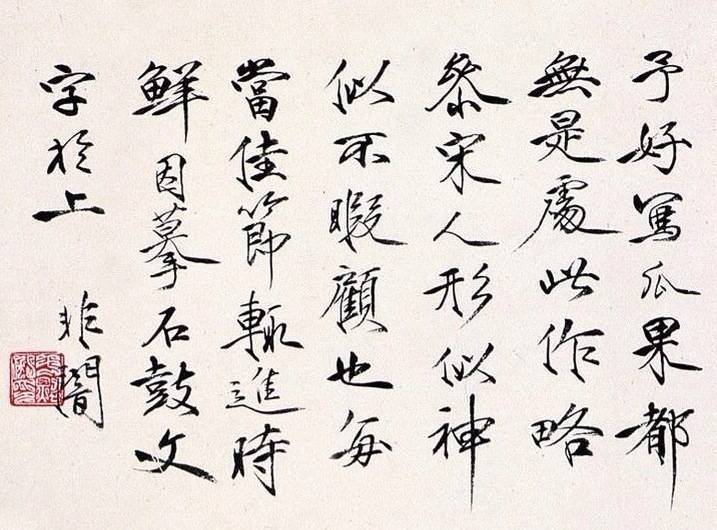 予好寫瓜果都
無是處此作略
參宋人形似神
似不暇顧也每
當佳節輒進時
鮮因摹石鼓文
字於上
非闇